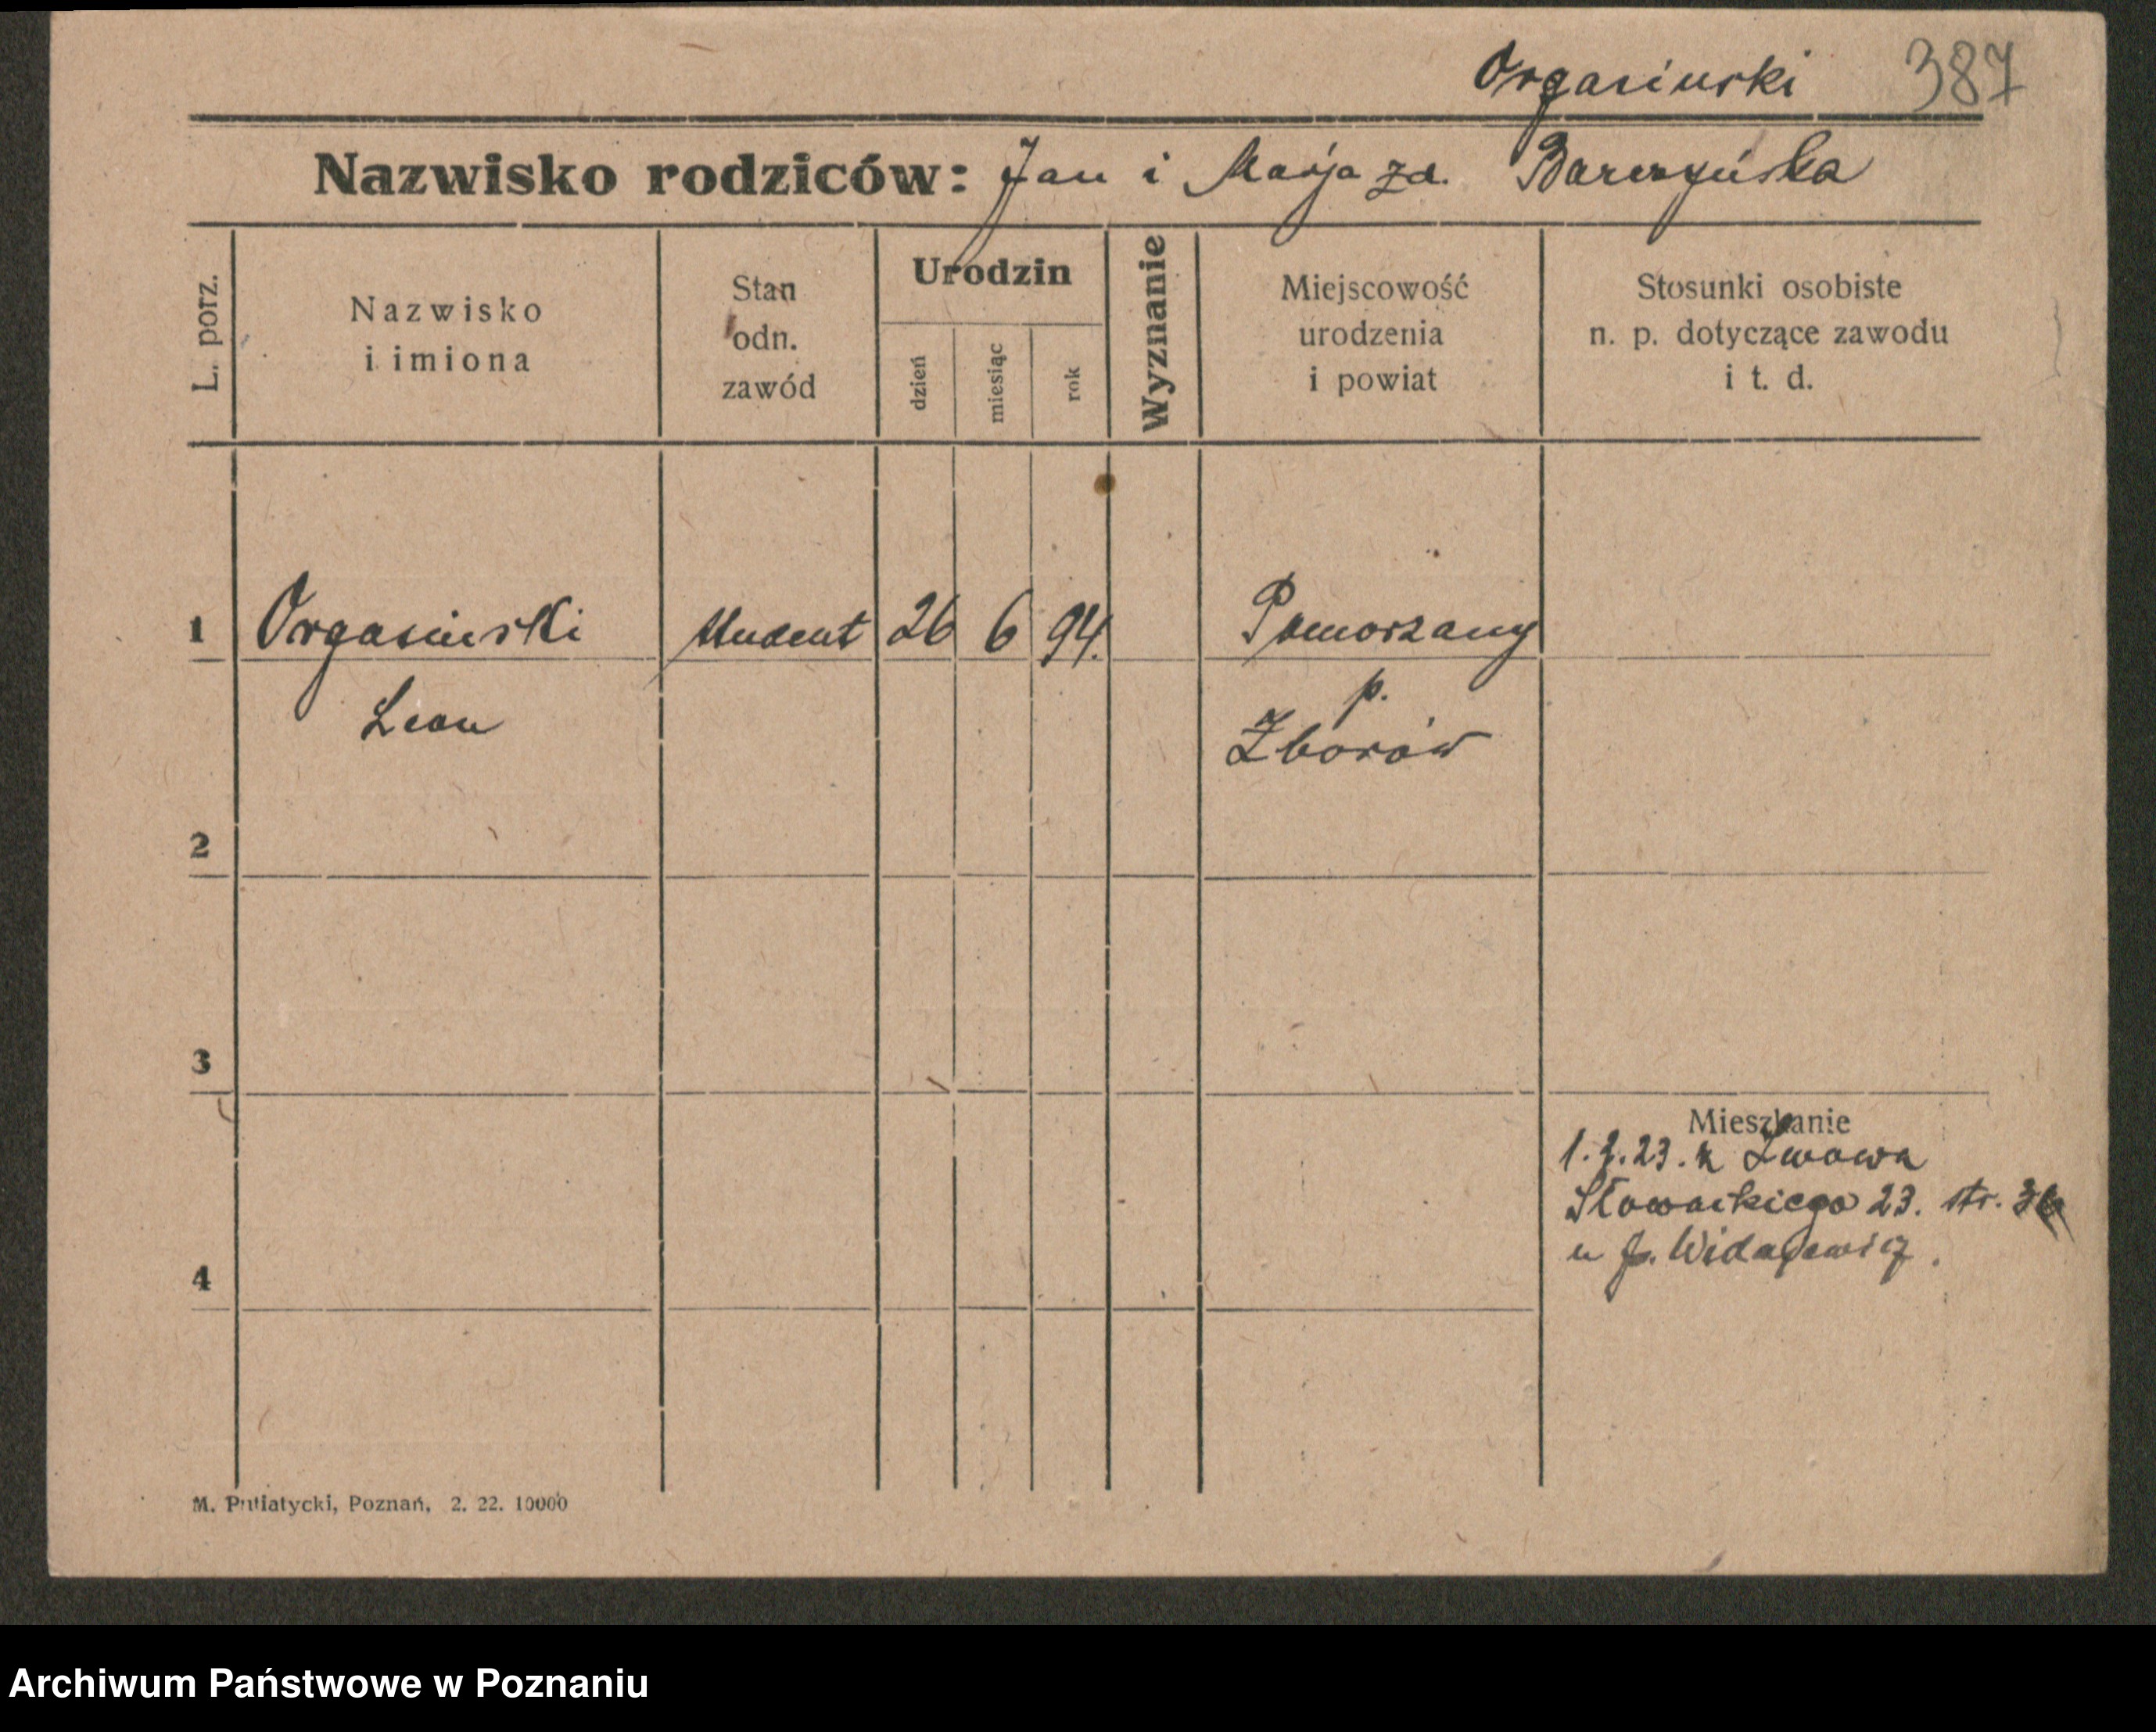 Orgasiński 387
Nazwisko rodziców: Jan i Marja zd. Barczyńska
L. porz.
Nazwisko
i imiona
Stan
odn.
zawód
Urodzin
dzień
miesiąc
rok
Wyznanie
Miejscowość
urodzenia
i powiat
Stosunki osobiste
n. p. dotyczące zawodu
i t. d.
1 Orgasiński student 26 6 94. Pomorzany
Leon p.
Zborów
2
3
Mieszkanie
1.2.23. z Lwowa
Słowackiego 23. str.
u p.
4
M. Putiatycki, Poznań, 2. 22. 10000
Archiwum Państwowe w Poznaniu